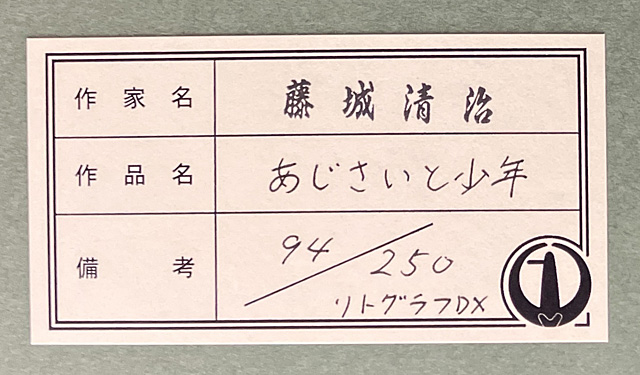 作家名 藤城清治
作品名 あじさいと少年
備考 94/250
リトグラフDX